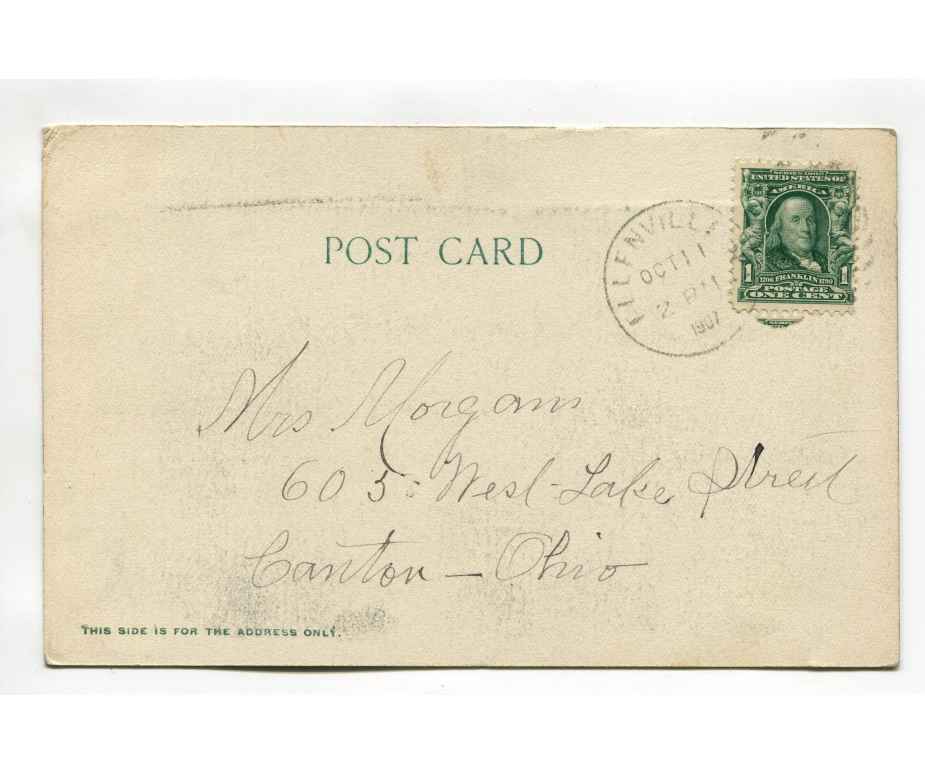 POST CARD
ELLENVILLE
OCT 11
2 PM
1907
SERIES 1902
UNITED STATES OF
AMERICA
1 1706 FRANKLIN 1790 1
POSTAGE
ONE CENT
Mrs Morgans
605 West Lake Street
Canton – Ohio
THIS SIDE IS FOR THE ADDRESS ONLY.